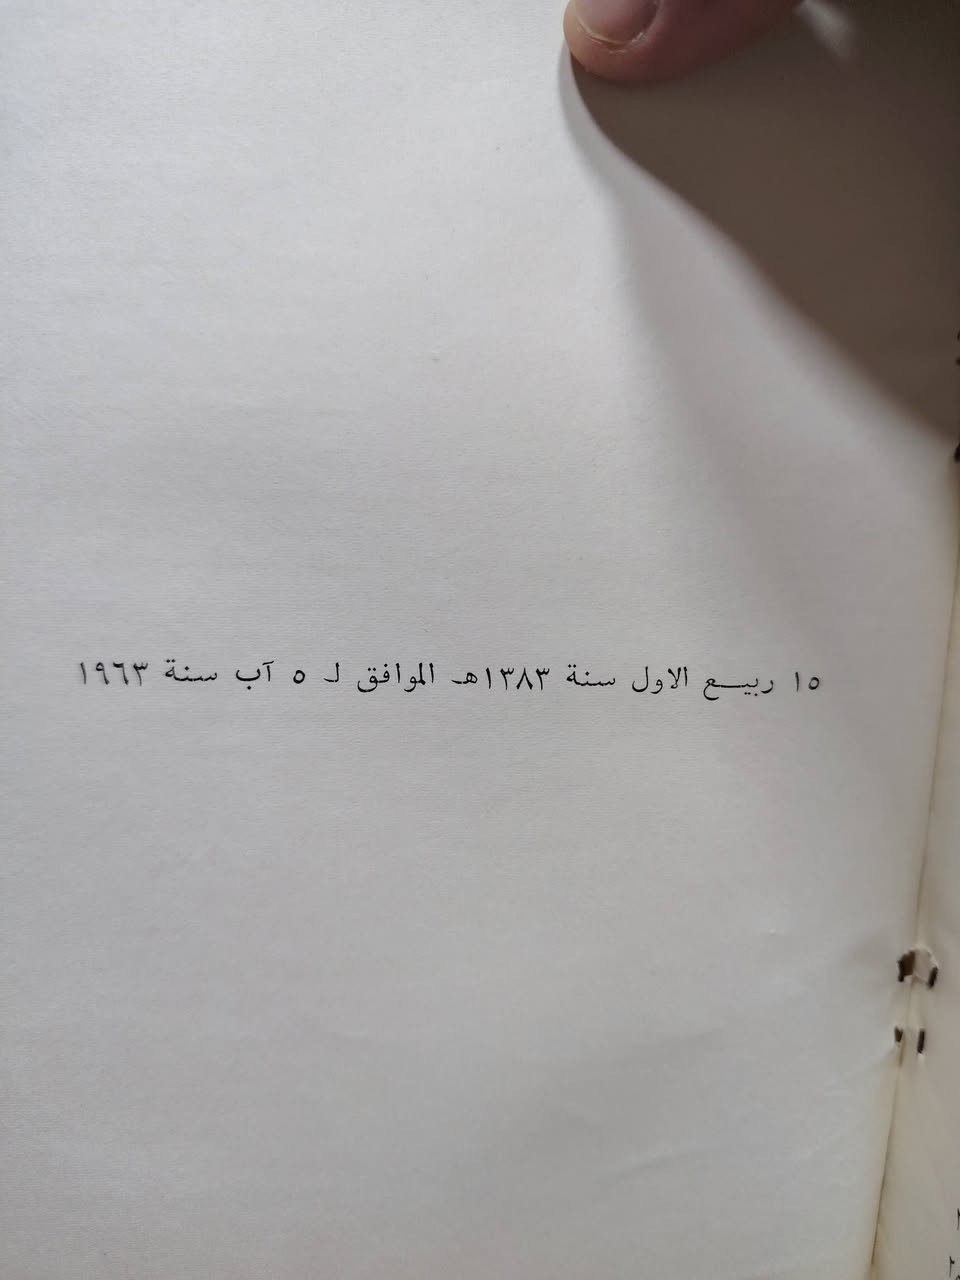 ١٥ ربيع الاول سنة ١٣٨٣هـ الموافق لـ ٥ آب سنة ١٩٦٣